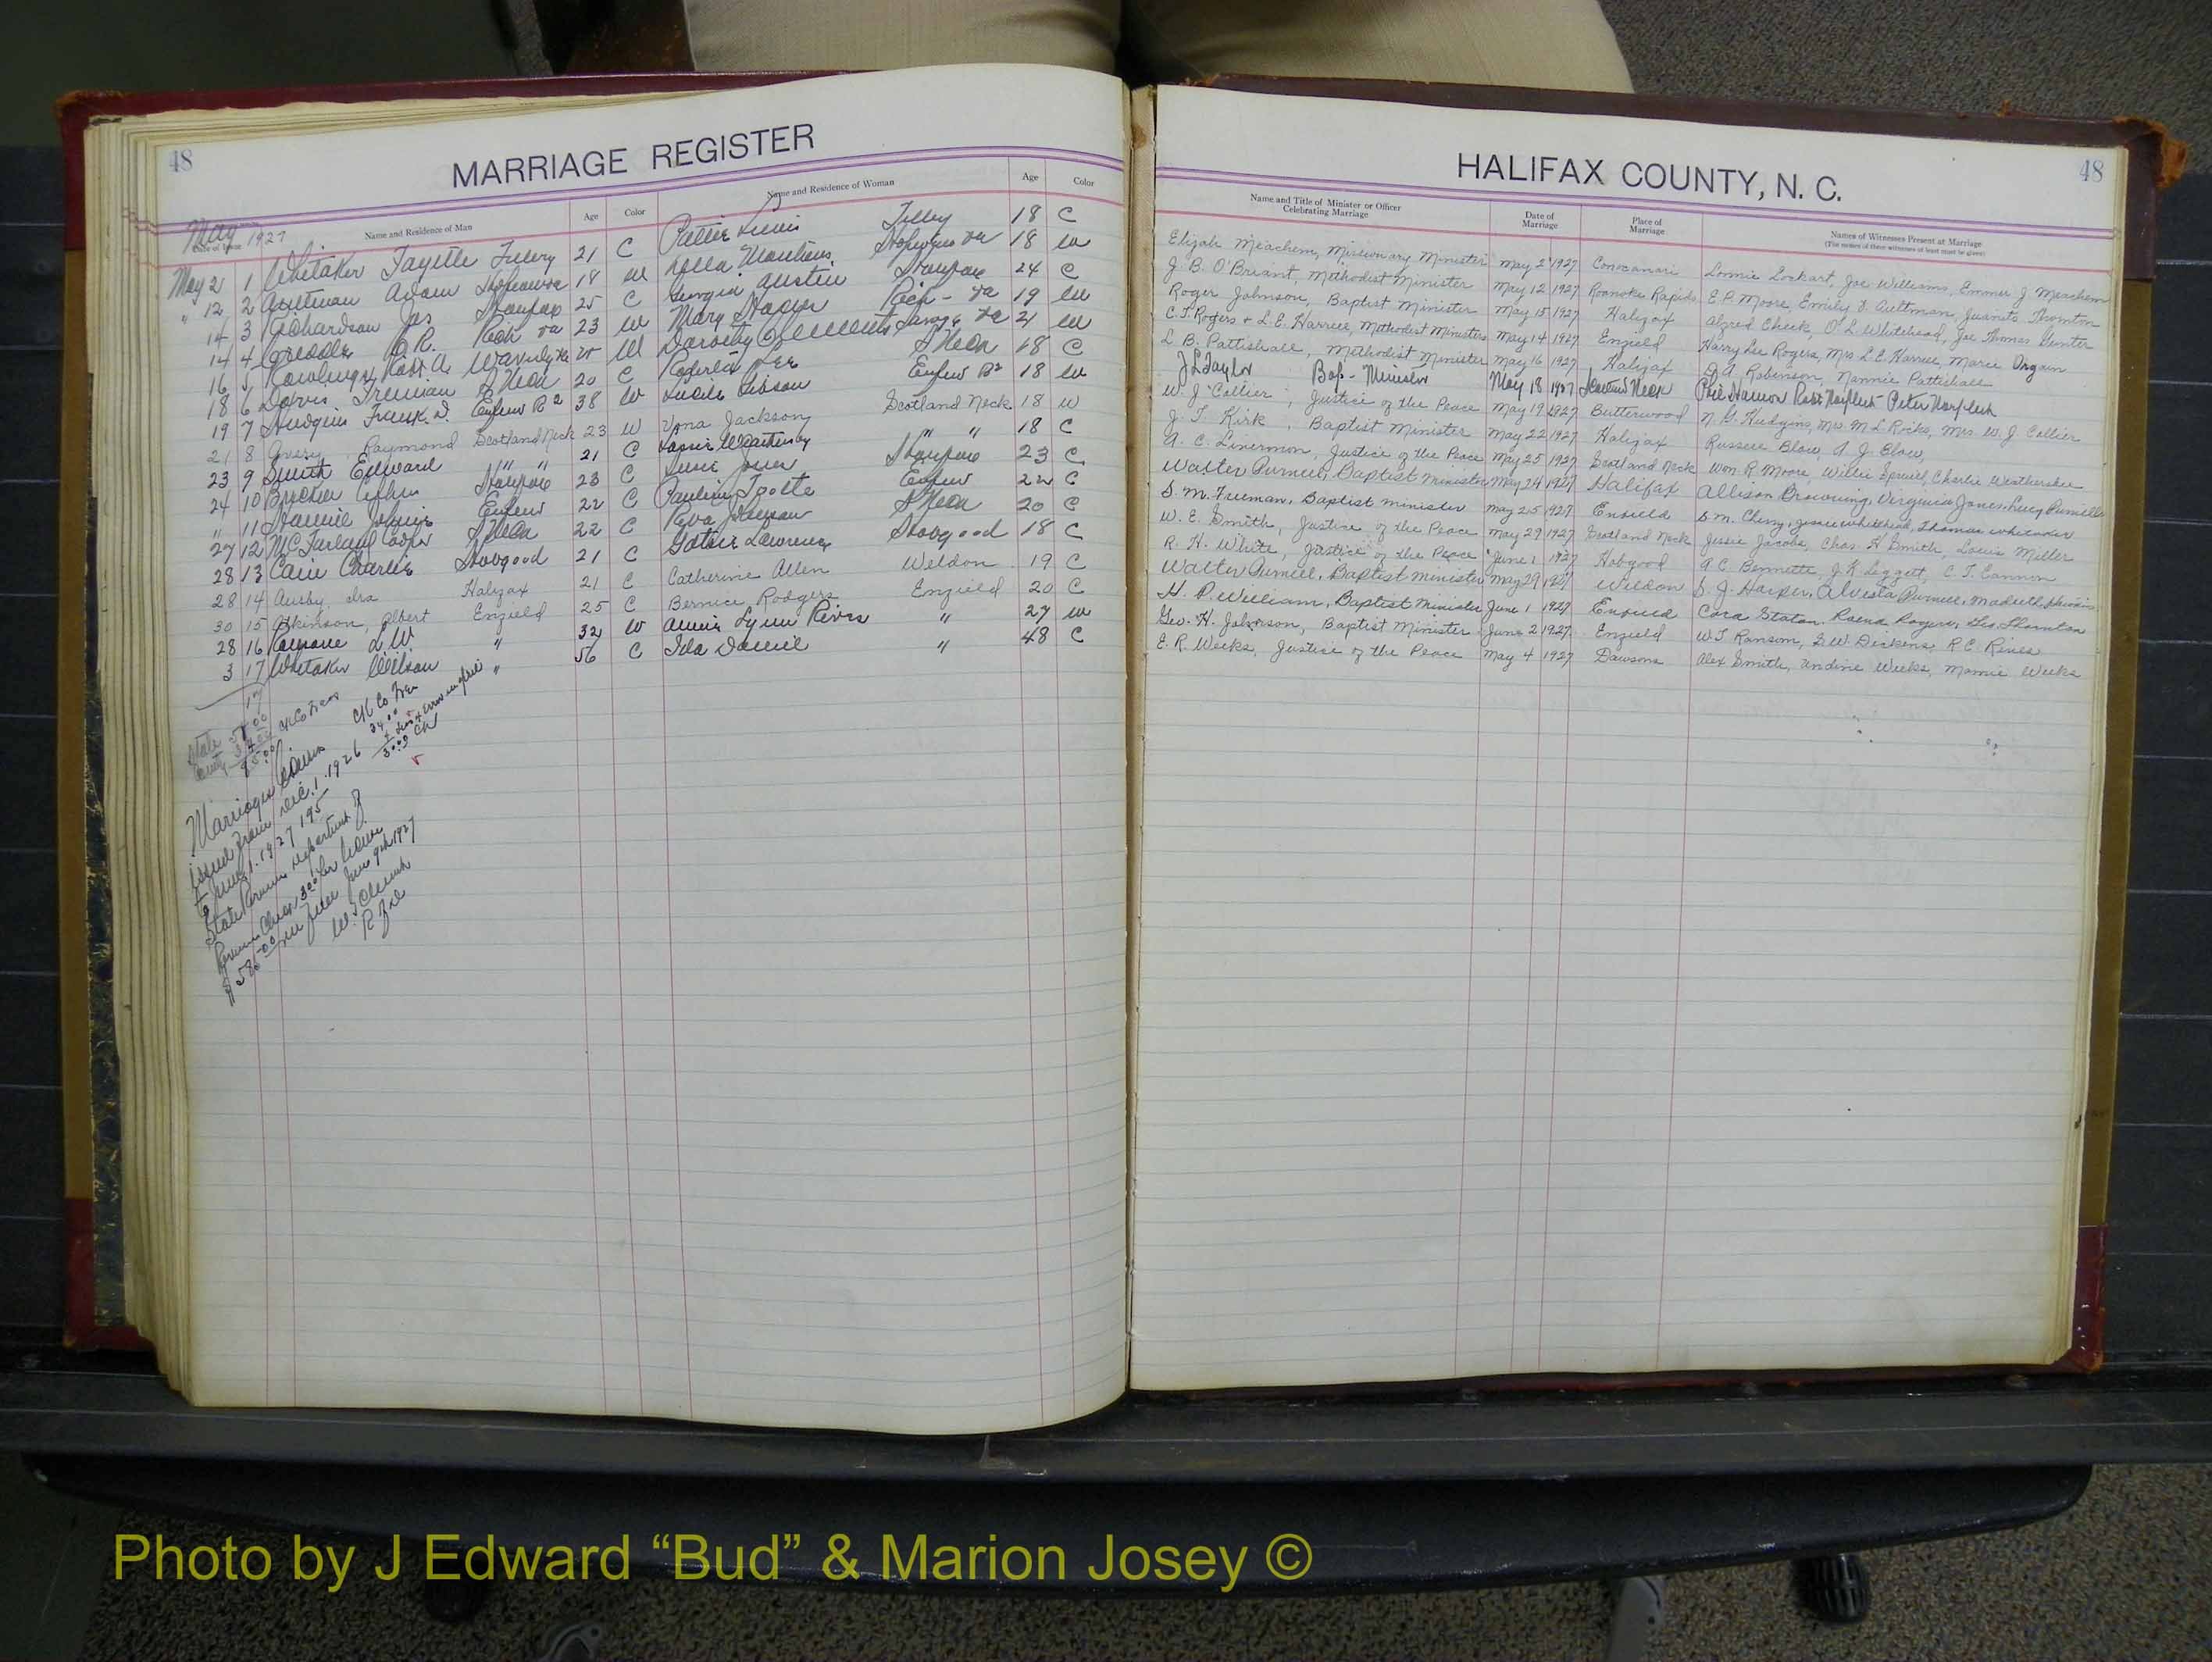 48
MARRIAGE REGISTER
May 1927
Date of Issue
Name and Residence of Man
Age
Color
Name and Residence of Woman
Age
Color
May 2 1 Whitaker Fayette Tillery 21 C Pattie Lewis Tilley 18 C
" 12 2 Aultman Adam Hopewell va 18 W Hopewell va 18 W
14 3 Richardson Jas Halifax 25 C Georgia Austin Halifax 24 C
14 4 O.R. Rich va 23 W Mary Rich - va 19 W
16 5 Rawlings Robt A. Waverly Va W Dorothy Clements va 21 W
18 6 S Neck 20 C Roberta Lee S Neck 18 C
19 7 Hudgins Frank D. Enfield R 2 38 W Lucile Gibson Enfield R 2 18 W
21 8 Avery Raymond Scotland Neck 23 W Vona Jackson Scotland Neck 18 W
23 9 Smith Edward " " 21 C " " 18 C
24 10 Halifax 23 C Susie Jones Halifax 23 C
" 11 Enfield 22 C Pauline Enfield 22 C
27 12 McFarland S Neck 22 C S Neck 20 C
28 13 Cain Charlie Hobgood 21 C Lawrence Hobgood 18 C
28 14 Ausby, Ira Halifax 21 C Catherine Allen Weldon 19 C
30 15 Atkinson, Albert Enfield 25 C Bernice Rodgers Enfield 20 C
28 16 L.W. " 32 W Annie Lynn Rives " 27 W
3 17 Whitaker Wilson " 56 C Ida Daniel " 48 C
17
State 51.00
County 34.00 CK Co Treas
85.00
CK Co Treas
34.00
Marriage
issued from Dec. 1. 1926
to June 1. 1927 195
State Revenue Department of
$ 585.00
June 9th 1927
48
HALIFAX COUNTY, N. C.
Name and Title of Minister or Officer
Celebrating Marriage
Date of
Marriage
Place of
Marriage
Names of Witnesses Present at Marriage
Elijah Meachem, Missionary Minister May 2 1927 Conocanari Lonnie Lockart, Joe Williams, Emmer J. Meachem
J. B. O'Briant, Methodist Minister May 12 1927 Roanoke Rapids E.P. Moore, Emily V. Aultman, Juanita Thornton
Roger Johnson, Baptist Minister May 15 1927 Halifax Alfred Cheek, O. L. Whitehead, Joe Thomas Hunter
C.T. Rogers & L.E. Harrell, Methodist Ministers May 14 1927 Enfield Harry Lee Rogers, Mrs L.E. Harrell, Marie Organ
L. B. Pattishall, Methodist Minister May 16 1927 Halifax Robinson, Nannie Pattishall
J L Taylor Bap- Minister May 18 1927 Scotland Neck Phil Hamon Robt Norfleet Peter Norfleet
W. J Collier, Justice of the Peace May 19 1927 Butterwood N. G. Hudgins, Mrs. M L Ricks, Mrs. W. J Collier
J. T. Kirk, Baptist Minister May 22 1927 Halifax Russell Blow, A. J. Blow,
A. C. Linermon, Justice of the Peace May 25 1927 Scotland Neck Wm. R. Moore, Willie Spruiel, Charlie
Walter Purnell, Baptist Minister May 24 1927 Halifax Allison Browning, Virginia Jones, Lucy Purnell
S. M. Freeman, Baptist Minister May 25 1927 Enfield S.M. Cherry, Jessie Whitehead, Thomas Whitaker
W. E. Smith, Justice of the Peace May 29 1927 Scotland Neck Jessie Jacobs, Chas. H Smith, Louis Miller
R. H. White, Justice of the Peace June 1 1927 Hobgood A C. Bennette, J. K. Leggett, C. T. Cannon
Walter Purnell, Baptist Minister May 29 1927 Weldon S. J. Harper, Alvesta Purnell,
H. P. William, Baptist Minister June 1 1927 Enfield Cora Staton, Rosena Rogers, Geo. Thornton
Geo. H. Johnson, Baptist Minister June 2 1927 Enfield W. T Ranson, S. W. Dickens, R. C. Rives
E. R. Weeks, Justice of the Peace May 4 1927 Dawsons Alex Smith, Undine Weeks, Mamie Weeks
Photo by J Edward “Bud” & Marion Josey ©